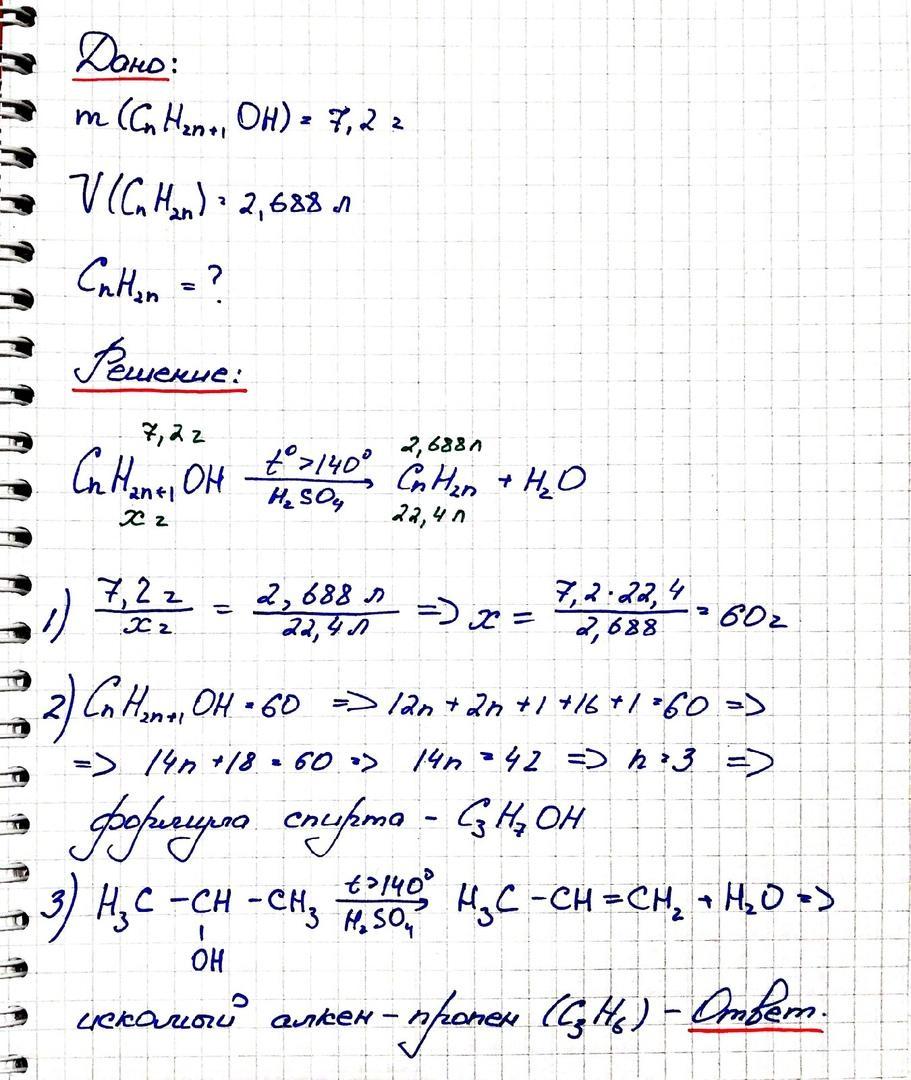 Дано:
m (CnH2n+1 OH) = 7,2 г
V(CnH2n) = 2,688 л
CnH2n = ?
Решение:
7,2 г 2,688 л
CnH2n+1OH t° >140° H2SO4 → CnH2n + H2O
x г 22,4 л
1) 7,2 г / x г = 2,688 л / 22,4 л => x = 7,2·22,4 / 2,688 = 60 г
2) CnH2n+1 OH = 60 => 12n + 2n +1 +16 +1 = 60 =>
=> 14n +18 = 60 => 14n = 42 => n = 3 =>
формула спирта - C3H7OH
3) H3C -CH -CH3 t>140° H2SO4 → H3C -CH =CH2 + H2O =>
OH
искомый алкен - пропен (C3H6) - Ответ.